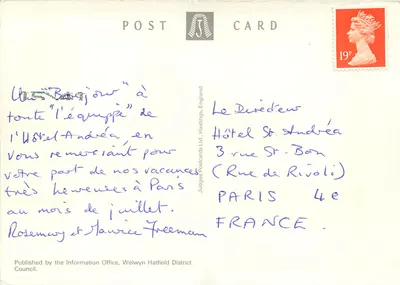 POST CARD
19P
Un "Bonjour" à
toute "l'équippe" de
l'Hôtel-Andréa, en
vous remerciant pour
votre part de nos vacances
très heureuses à Paris
au mois de juillet.
Rosemary et Maurice Freeman
Judges Postcards Ltd., Hastings, England
Le Directeur
Hôtel St. Andréa
3 rue St-Bon
(Rue de Rivoli)
PARIS 4e
FRANCE.
Published by the Information Office, Welwyn Hatfield District
Council.